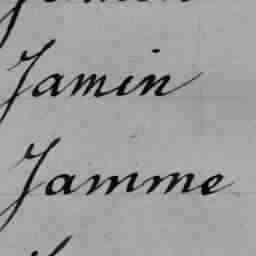 Jamin
Jamme